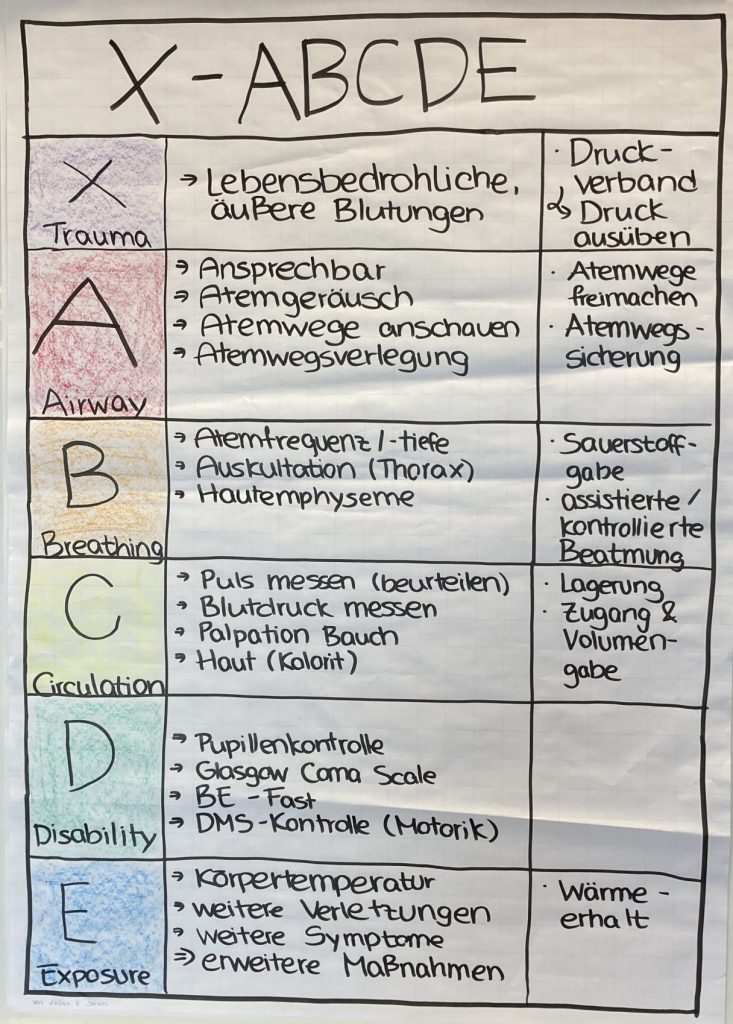 X-ABCDE
X
Trauma
→ Lebensbedrohliche,
äußere Blutungen
· Druck-
verband
↳ Druck
ausüben
A
Airway
→ Ansprechbar
→ Atemgeräusch
→ Atemwege anschauen
→ Atemwegsverlegung
· Atemwege
freimachen
· Atemwegs-
sicherung
B
Breathing
→ Atemfrequenz/-tiefe
→ Auskultation (Thorax)
→ Hautemphyseme
· Sauerstoff-
gabe
· assistierte/
kontrollierte
Beatmung
C
Circulation
→ Puls messen (beurteilen)
→ Blutdruck messen
→ Palpation Bauch
→ Haut (Kolorit)
· Lagerung
· Zugang &
Volumen-
gabe
D
Disability
→ Pupillenkontrolle
→ Glasgow Coma Scale
→ BE-Fast
→ DMS-Kontrolle (Motorik)
E
Exposure
→ Körpertemperatur
→ weitere Verletzungen
→ weitere Symptome
⇒ erweitere Maßnahmen
· Wärme-
erhalt